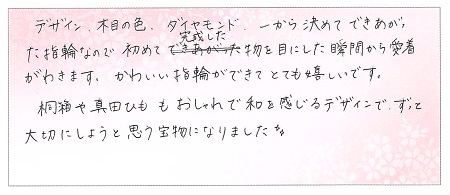 デザイン、木目の色、ダイヤモンド、一から決めてできあがっ
完成した
た指輪なので初めてできあがった物を目にした瞬間から愛着
がわきます。かわいい指輪ができてとても嬉しいです。
桐箱や真田ひももおしゃれで和を感じるデザインで、ずっと
大切にしようと思う宝物になりました